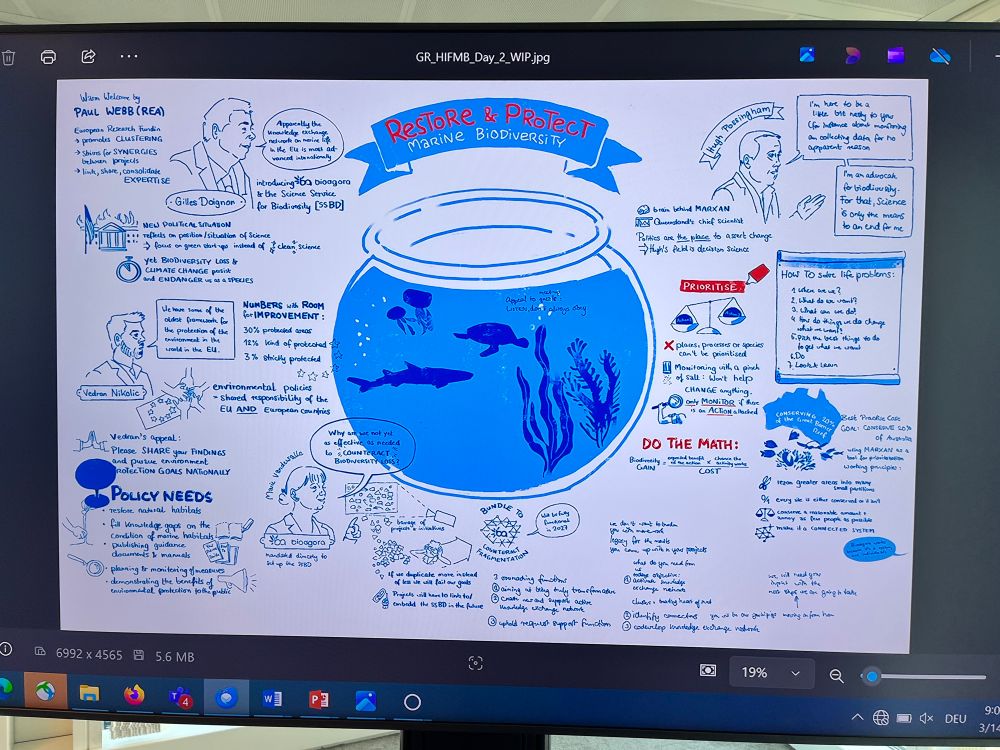 GR_HIFMB_Day_2_WIP.jpg
Warm Welcome by
PAUL WEBB (REA)
European Research Fundin
→ promotes CLUSTERING
→ strives for SYNERGIES
between projects
→ link, share, consolidate
EXPERTISE
Gilles Doignon
Apparently the
knowledge exchange
network on marine life
in the EU is most ad-
vanced internationally
introducing bioagora
& the Science Service
for Biodiversity [SSBD]
NEW POLITICAL SITUATION
reflects on position/situation of Science
→ focus on green start-ups instead of clean science
yet BIODIVERSITY LOSS &
CLIMATE CHANGE persist
and ENDANGER us as a SPECIES
We have some of the
oldest framework for
the protection of the
environment in the
world in the EU.
Vedran Nikolic
NUMBERS with ROOM
for IMPROVEMENT:
30% protected areas
12% kind of protected
3% strictly protected
environmental policies
= shared responsibility of the
EU AND European countries
Vedran's appeal:
Please SHARE your FINDINGS
and pursue environment
PROTECTION GOALS NATIONALLY
POLICY NEEDS
• restore natural habitats
• fill knowledge gaps on the
condition of marine habitats
• publishing guidance
documents & manuals
• planning & monitoring of measures
• demonstrating the benefits of
environmental protection to the public
RESTORE & PROTECT
MARINE BIODIVERSITY
Appeal to
Why are we not yet
as effective as needed
to COUNTERACT
BIODIVERSITY LOSS?
bioagora
set up the SSBD
projects & initiatives
If we duplicate more instead
of less we will fail our goals
Projects will have to links to/
embedd the SSBD in the future
BUNDLE TO
COUNTERACT
FRAGMENTATION
Will be fully
functional
in 2027
3 functions
aiming at being truly transformative
and support active
knowledge exchange network
③ uphold request support function
we don't want to burden
you with more work
legacy for the
you came up with in your projects
what do you need from
us
today objective:
① activate knowledge
exchange network
② identify connectors
③ codevelop knowledge exchange network
we will need your
input with the
next steps we are going to take
Hugh Possingham
I'm here to be a
little bit nasty to you
(for instance about monitoring
an collecting data for no
apparent reason
I'm an advocate
for biodiversity.
For that, Science
is only the means
to an end for me
brain behind MARXAN
Queensland's chief scientist
Politics are the place to assert change
→ Hugh's field is decision science
PRIORITISE:
places, processes or species
can't be prioritised
Monitoring with a pinch
of salt: Won't help
CHANGE anything.
only MONITOR if there
is an ACTION attached
HOW TO solve life problems:
1. Where are we?
2. What do we want?
3. What can we do?
4. How do things we do change
what we want?
5. Pick the best things to do
to get what we want
6. Do
7. Look & Learn
DO THE MATH:
Biodiversity GAIN = expected benefit of the action × chance the activity works
COST
CONSERVING 20%
of the Great Barrier
Reef
Best Practice Case
GOAL: CONSERVE 20%
of Australia
using MARXAN as a
tool for prioritisation
working principles:
greater areas into many
small partitions
every site is either conserved or it isn't
conserve a reasonable amount +
annoy as few people as possible
make it a CONNECTED SYSTEM
6992 x 4565
5.6 MB
19%
4
DEU
9:0
3/14